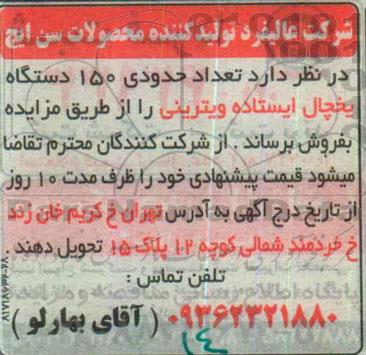 شرکت عالیفرد تولیدکننده محصولات سن ایچ
در نظر دارد تعداد حدودی ۱۵۰ دستگاه
یخچال ایستاده ویترینی را از طریق مزایده
بفروش برساند . از شرکت کنندگان محترم تقاضا
میشود قیمت پیشنهادی خود را ظرف مدت ۱۰ روز
از تاریخ درج آگهی به آدرس تهران خ کریم خان زند
خ خردمند شمالی کوچه ۱۲ پلاک ۱۵ تحویل دهند .
تلفن تماس :
۰۹۳۶۲۳۲۱۸۸۰ ( آقای بهارلو )
۱۴